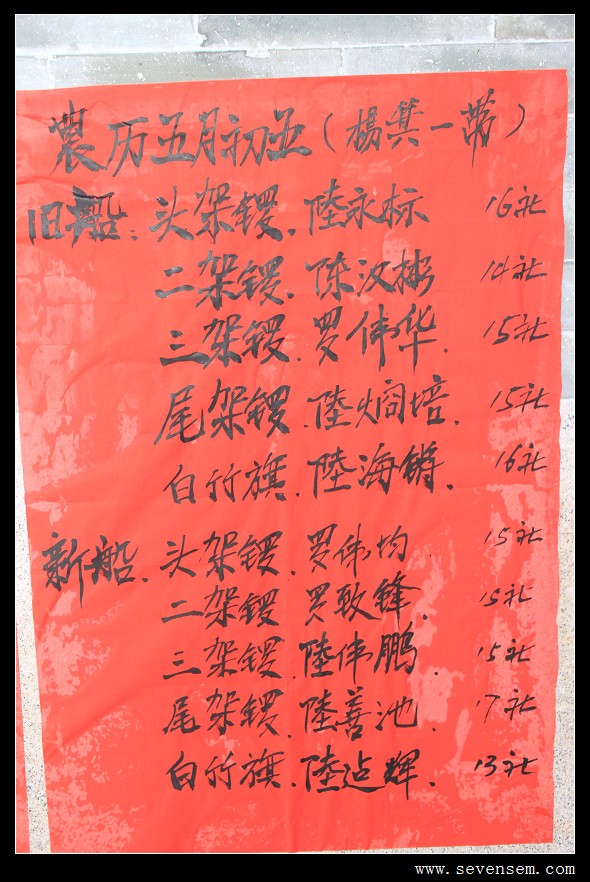 農历五月初五（楊箕一带）
旧船：头架锣．陸永标 16社
二架锣．陈汉彬 14社
三架锣．罗伟华． 15社
尾架锣．陸炯培． 15社
白竹旗．陸海锵． 16社
新船．头架锣．罗伟均 15社
二架锣 罗敢锋． 15社
三架锣．陸伟鹏． 15社
尾架锣．陸善池． 17社
白竹旗．陸沾輝． 13社
www.sevensem.com